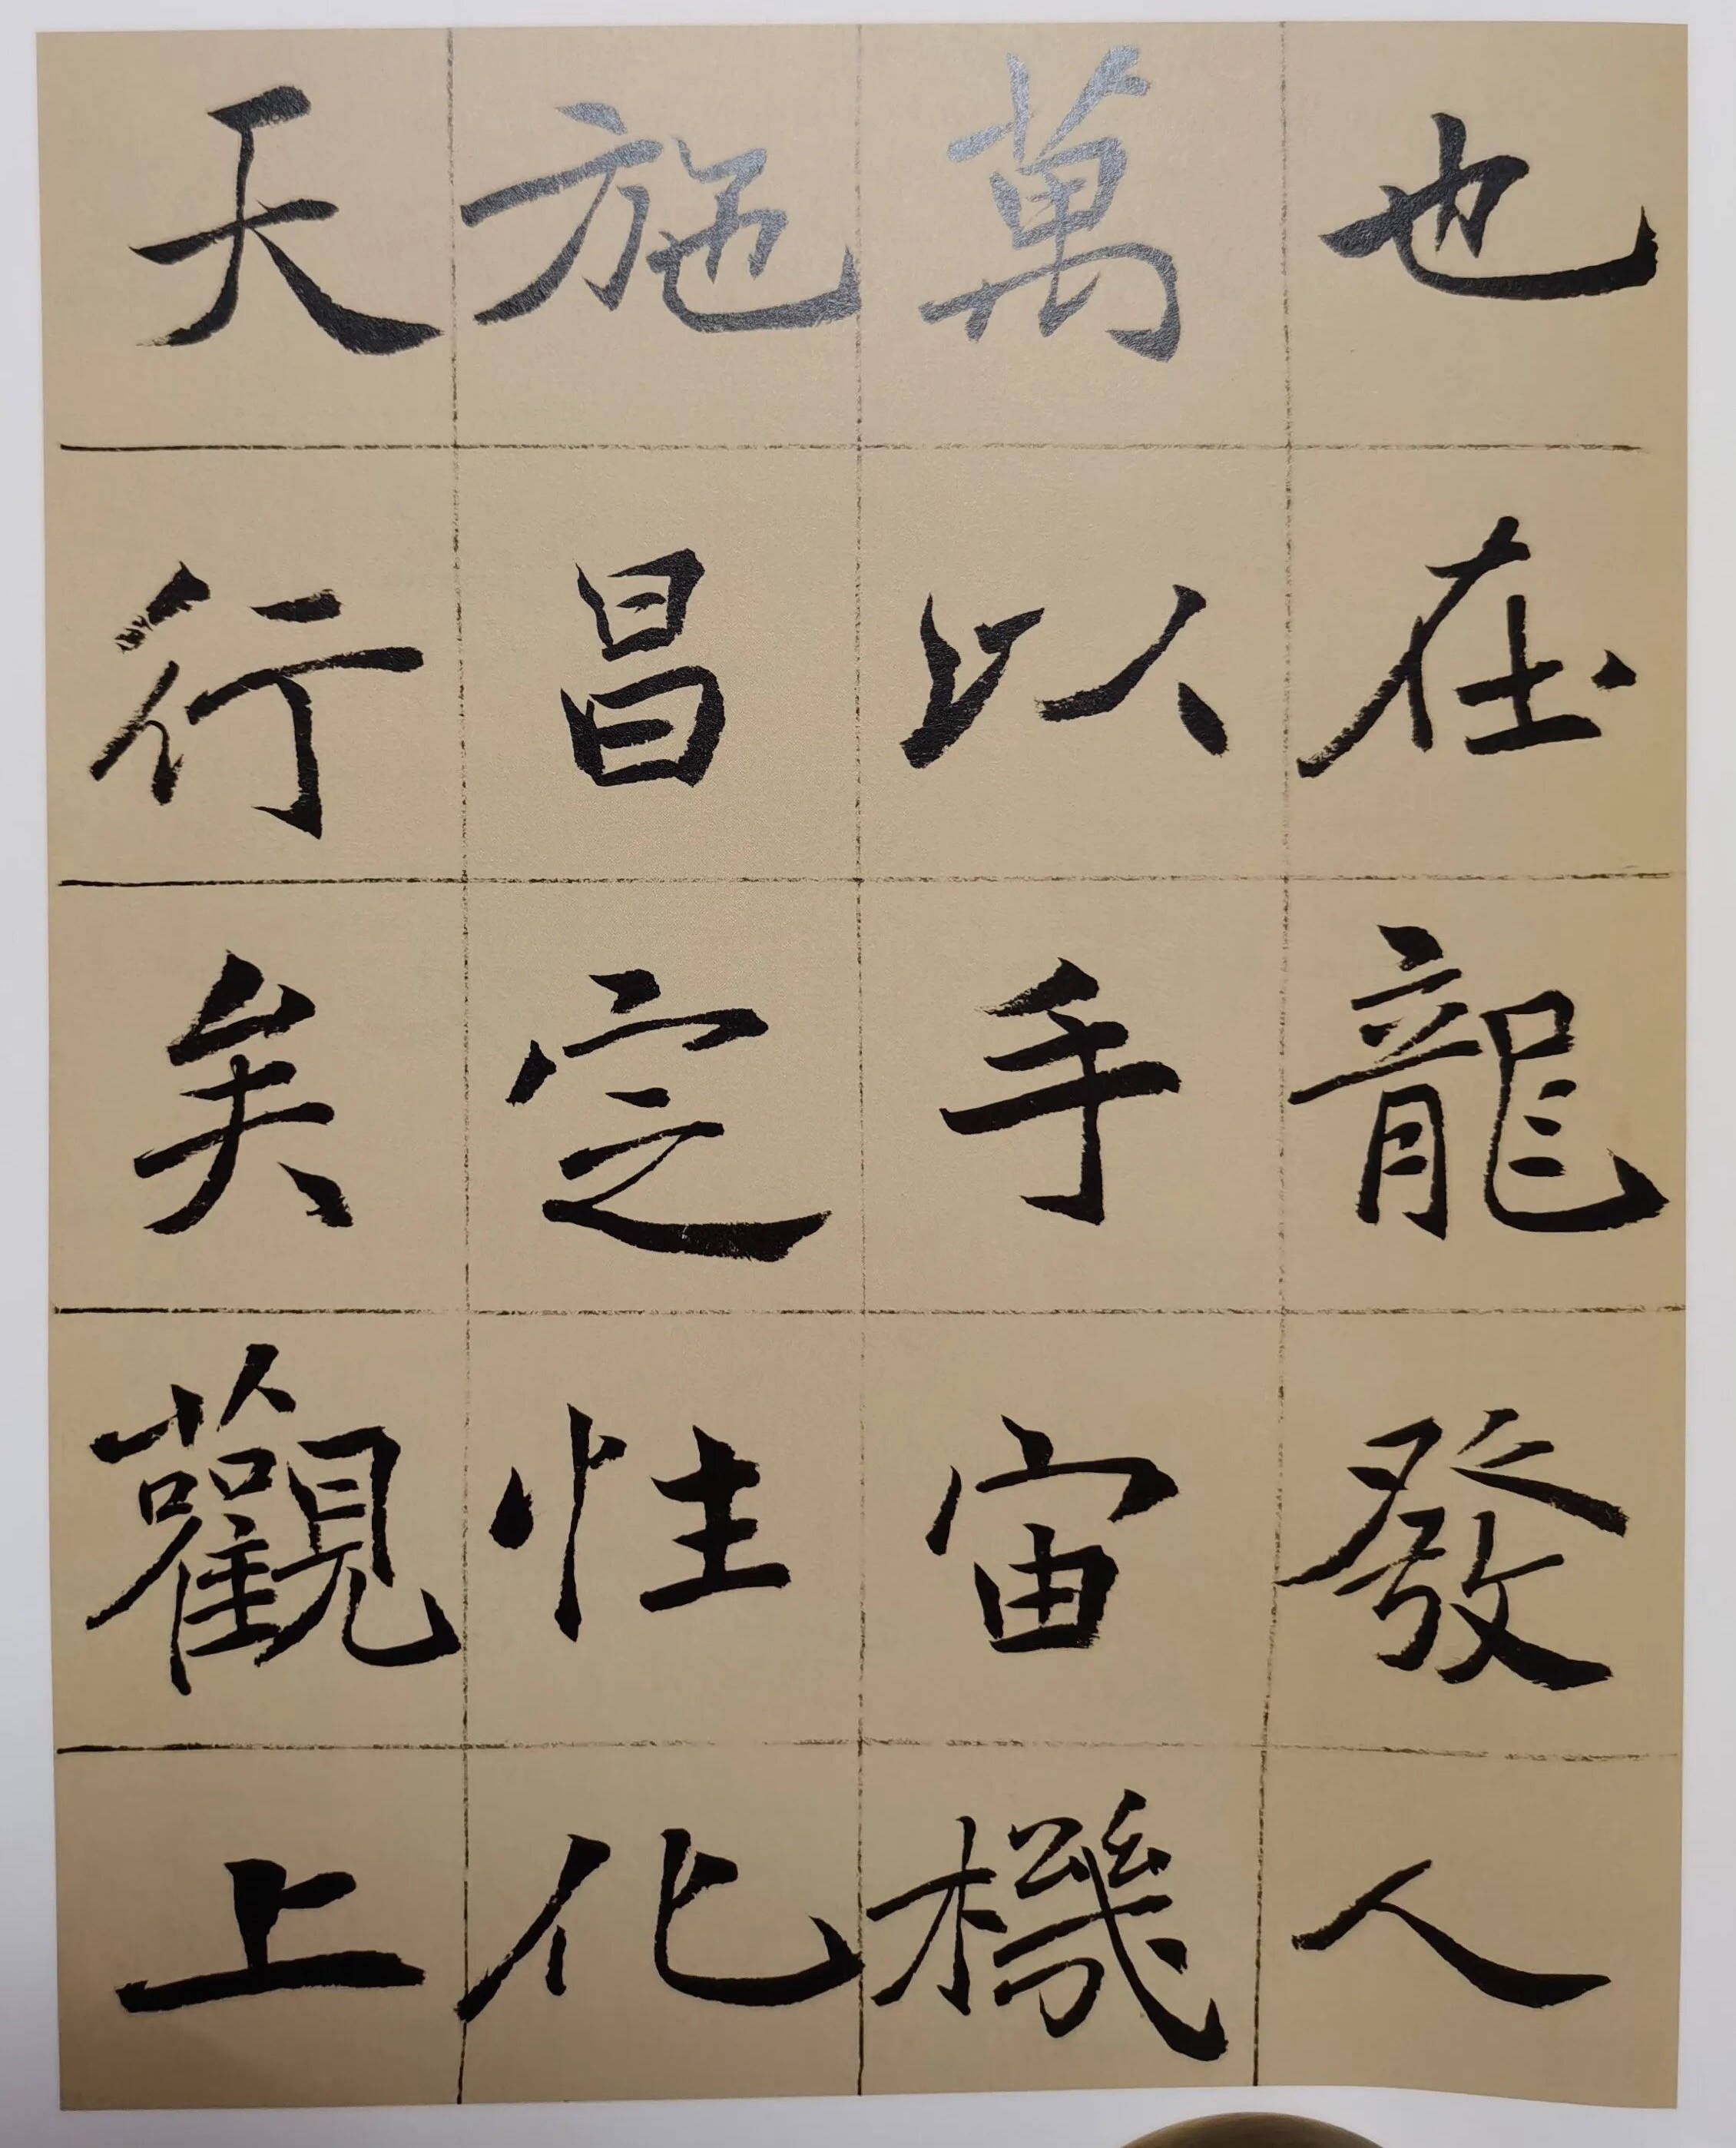 也在龍發人
萬以手宙機
施昌定性化
天行矣觀上